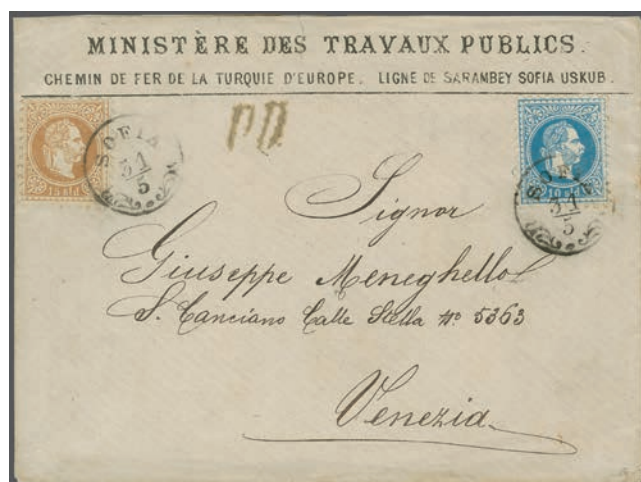 MINISTÈRE DES TRAVAUX PUBLICS.
CHEMIN DE FER DE LA TURQUIE D'EUROPE. LIGNE DE SARAMBEY SOFIA USKUB.
PD.
SOFIA
31/5
15 SLD
SOFIA
31/5
10 SLD
Signor
Giuseppe Meneghello
S. Canciano Calle Stella No 5363
Venezia